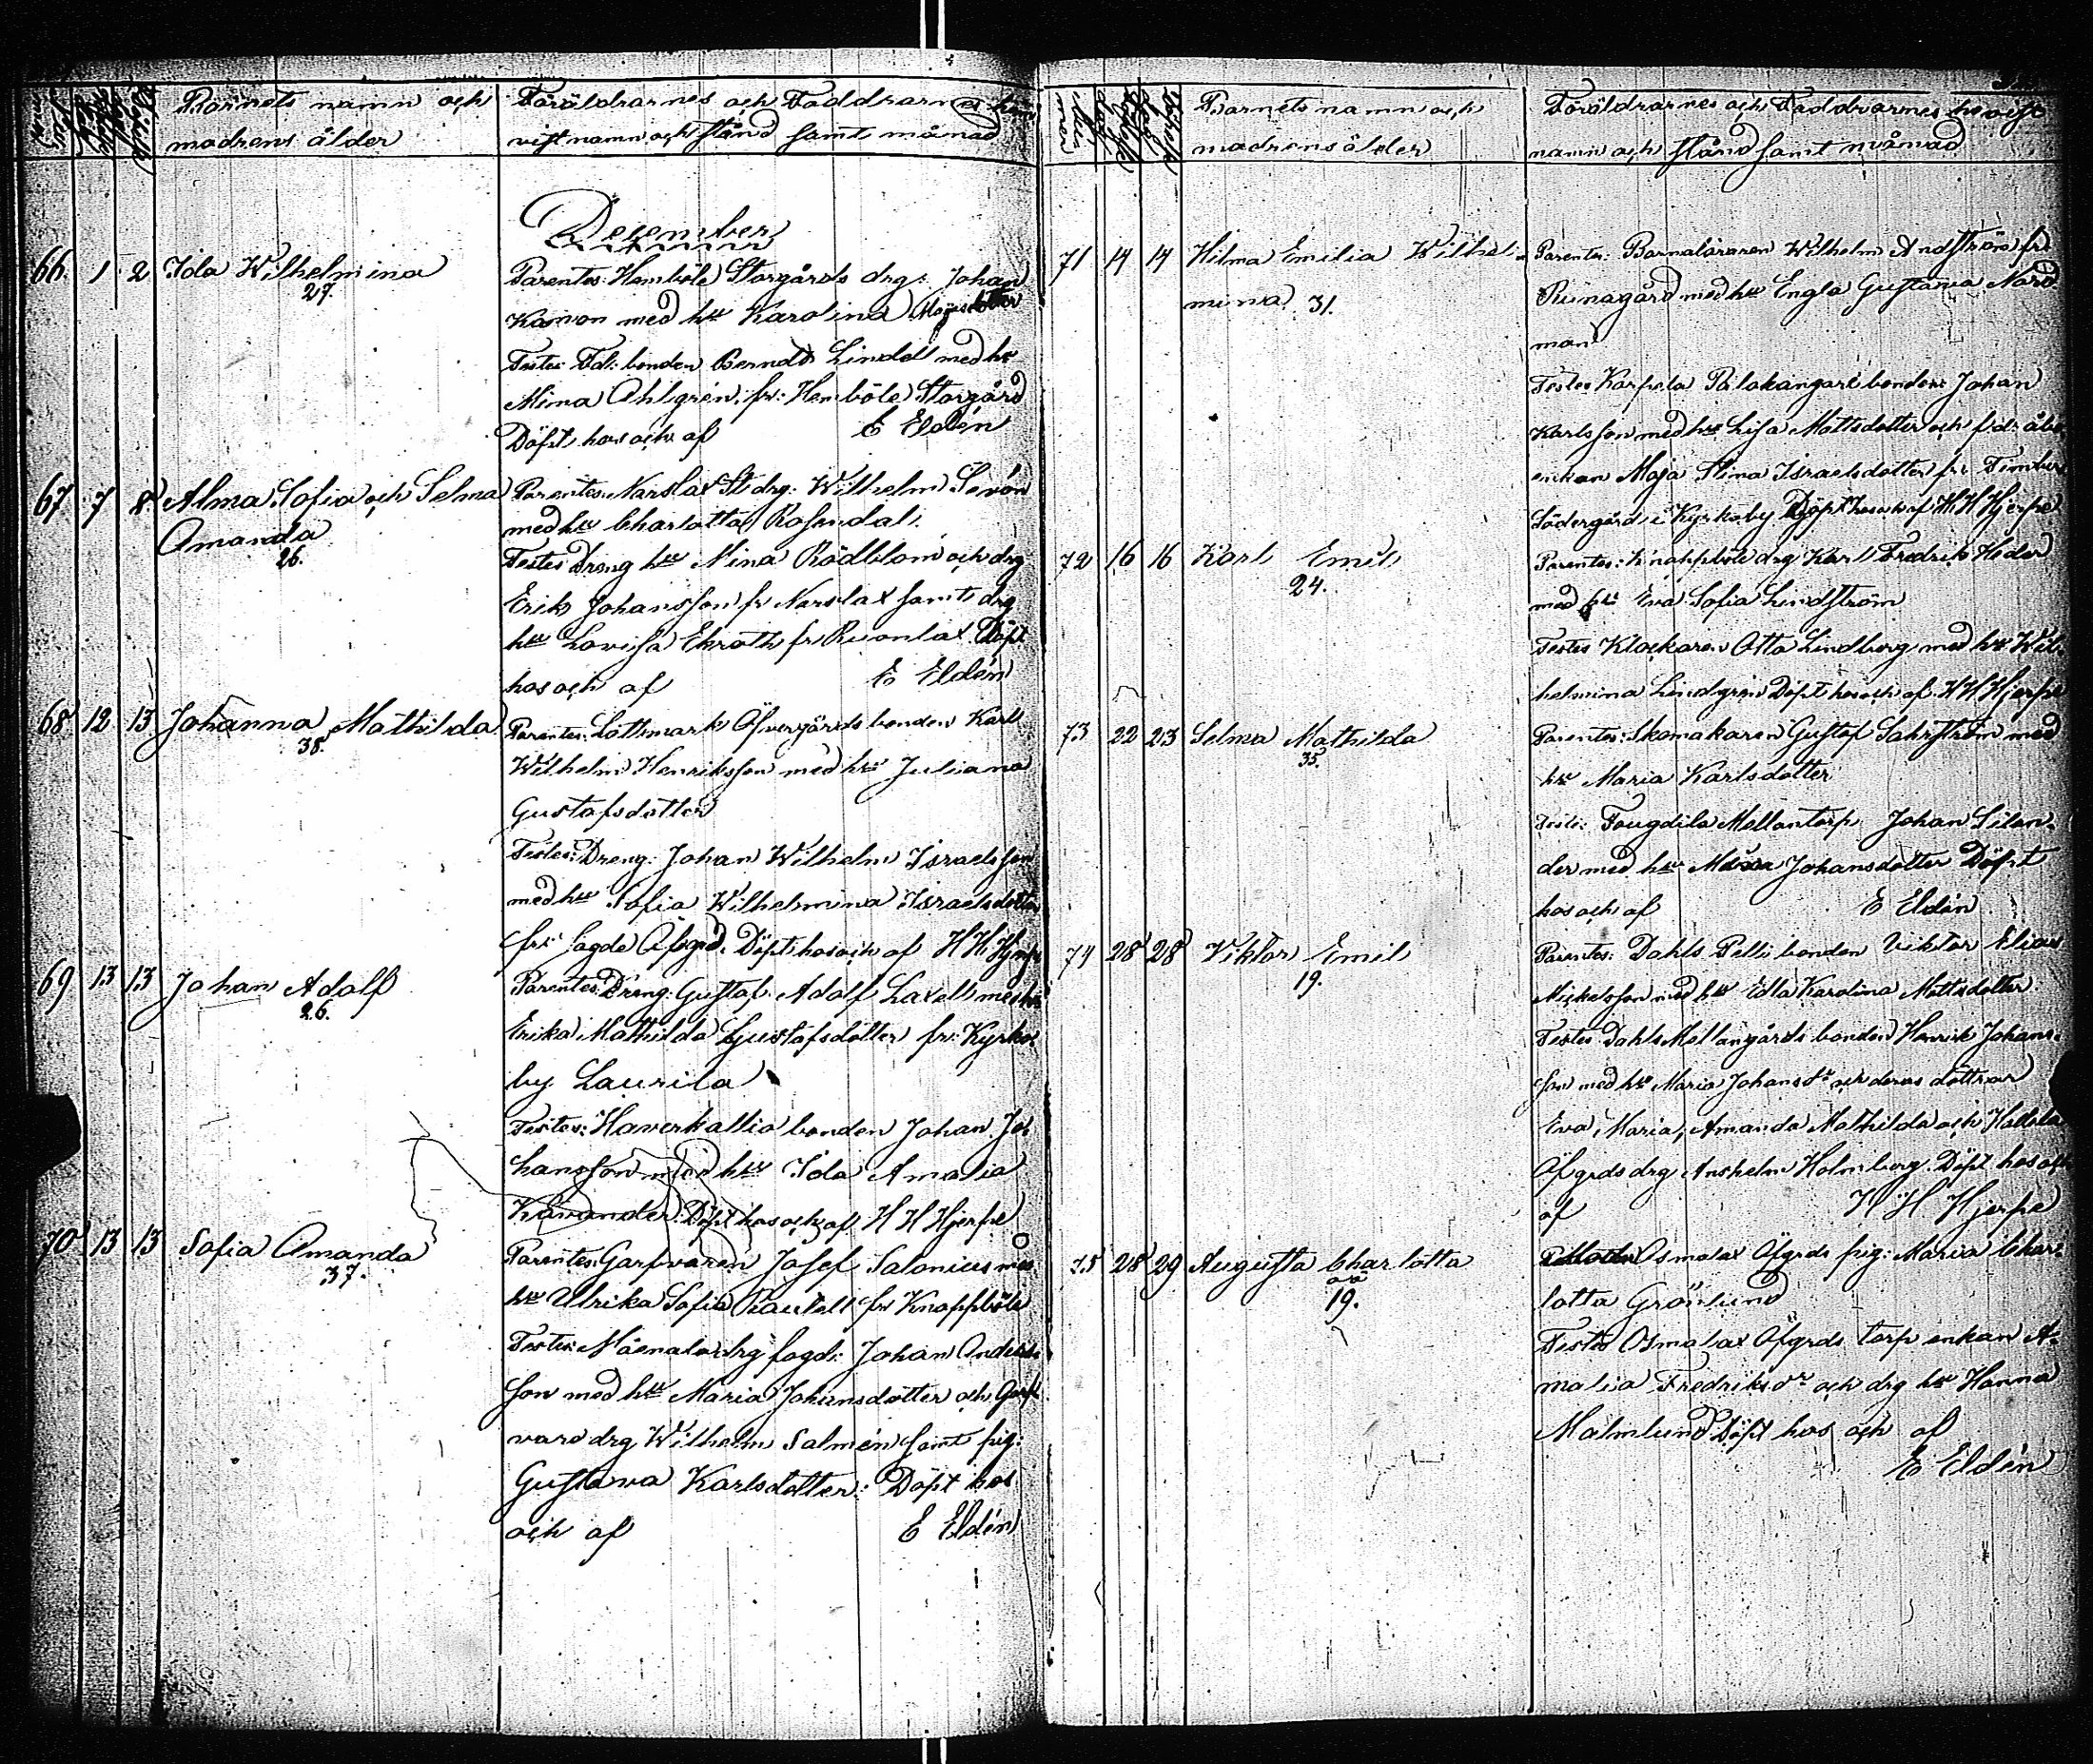 Barnets namn och
madrens ålder
Föräldrarnes och Faddrarnes hem
vist namn och stånd samt månad
December
66 1 2 Ida Wilhelmina
27.
Parentes: Hemböle Storgårds drg: Johan
Kanon med hu Karolina
Testes: Fd: bonden Berndt Lindell med hu
Mina Ahlgrén, fr: Hemböle Storgård
Döpt hos och af E Eldén
67 7 8 Alma Sofia och Selma
Amanda
26.
Parentes: Narslax St drg: Wilhelm Sevón
med hu Charlotta Rosendal.
Testes Dreng hu Mina Rödblom och drg
Erik Johansson fr Narslax samt drg
hu Lovisa Ekroth fr Reonlax Döpt
hos och af E Eldén
68 12 13 Johanna Mathilda
38.
Parentes: Lottsmark Öfvergårds bonden Karl
Wilhelm Henriksson med hu Juliana
Gustafsdotter
Testes: Dreng: Johan Wilhelm Israelsson
med hu Sofia Wilhelmina Israelsdotter
fr: Lagde Öfgrd. Döpt hos och af H H Hjerpe
69 13 13 Johan Adolf
26.
Parentes: Dreng: Gustaf Adolf Laxell med hu
Erika Mathilda Gustafsdotter fr: Kyrko
by Laurila
Testes: Haverkallio bonden Johan Jo
hansson med hu Ida Amalia
Kavander. Döpt hos och af H H Hjerpe
70 13 13 Sofia Amanda
37.
Parentes: Garfvaren Josef Salonius med
hu Ulrika Sofia Rautell fr Knappböle
Testes: Måenala drg fogd: Johan Anders
son med hu Maria Johansdotter och Garf
vare drg Wilhelm Salmén samt pig:
Gustava Karlsdotter: Döpt hos
och af E Eldén
Barnets namn och
madrens ålder
Föräldrarnes och Faddrarnes hemvist
namn och stånd samt månad
71 14 14 Hilma Emilia Wilhel-
mina 31.
Parentes: Barnaläraren Wilhelm Andström fr
Runagård med hu Engla Gustava Nord
man
Testes Karpela Palokangare bonden Johan
Karlsson med hu Lisa Mattsdotter och f:d: åbo
enkan Maja Stina Israelsdotter fr: Timber
Södergård i Kyrkoby Döpt hos och af H H Hjerpe
72 16 16 Karl Emil
24.
Parentes: Knappböle drg Karl Fredrik Heder
med hu Eva Sofia Lindström
Testes Klockaren Otto Lindberg med hu Wil-
helmina Lindgrén Döpt hos och af H H Hjerpe
73 22 23 Selma Mathilda
35.
Parentes: Skomakaren Gustaf Sahrström med
hu Maria Karlsdotter
Testes: Fougdila Mellantorp Johan Silan-
der med hu Maria Johansdotter Döpt
hos och af E Eldén
74 28 28 Viktor Emil
19.
Parentes: Dahls Pelli bonden Viktor Elias
Mickelsson med hu Edla Karolina Mattsdotter
Testes Dahls Mellangårds bonden Henrik Johans-
son med hu Maria Johansdr och deras döttrar
Eva Maria, Amanda Mathilda och Hallela
Öfgrds drg Anshelm Holmberg. Döpt hos och
af H H Hjerpe
75 28 29 Augusta Charlotta
oä
19.
Moder Osmalax Öfgrds pig: Maria Char-
lotta Grönlund
Testes Osmalax Öfgrds torp enkan A-
malia Fredriksdr och drg hu Hanna
Malmlund Döpt hos och af
E Eldén